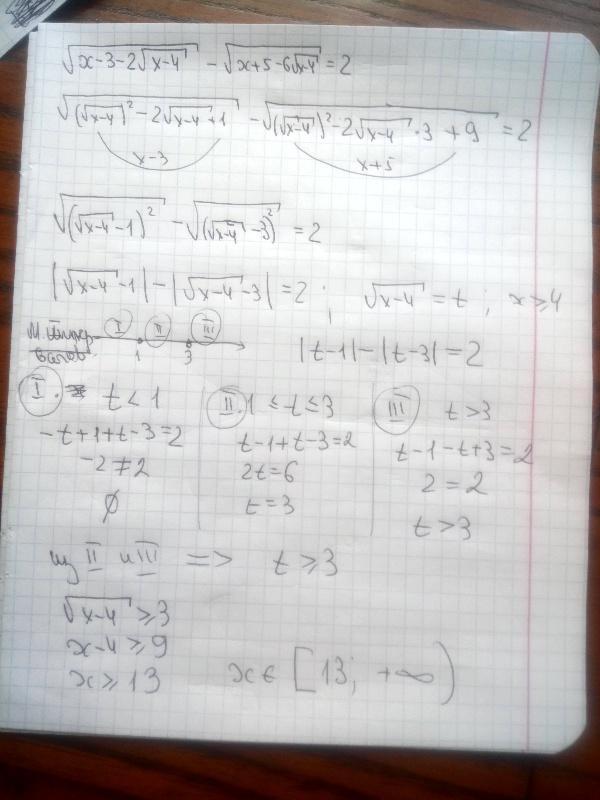 √(x-3-2√(x-4)) - √(x+5-6√(x-4)) = 2
√((√(x-4))² - 2√(x-4) + 1) - √((√(x-4))² - 2√(x-4) · 3 + 9) = 2
x-3 x+5
√((√(x-4) - 1)²) - √((√(x-4) - 3)²) = 2
|√(x-4) - 1| - |√(x-4) - 3| = 2 ; √(x-4) = t ; x ≥ 4
М. I II III
1 3
|t-1| - |t-3| = 2
I. t < 1
-t+1+t-3=2
-2 ≠ 2
∅
II. 1 ≤ t ≤ 3
t-1+t-3=2
2t=6
t=3
III t > 3
t-1-t+3=2
2 = 2
t > 3
из II и III => t ≥ 3
√(x-4) ≥ 3
x-4 ≥ 9
x ≥ 13 x ∈ [13; +∞)